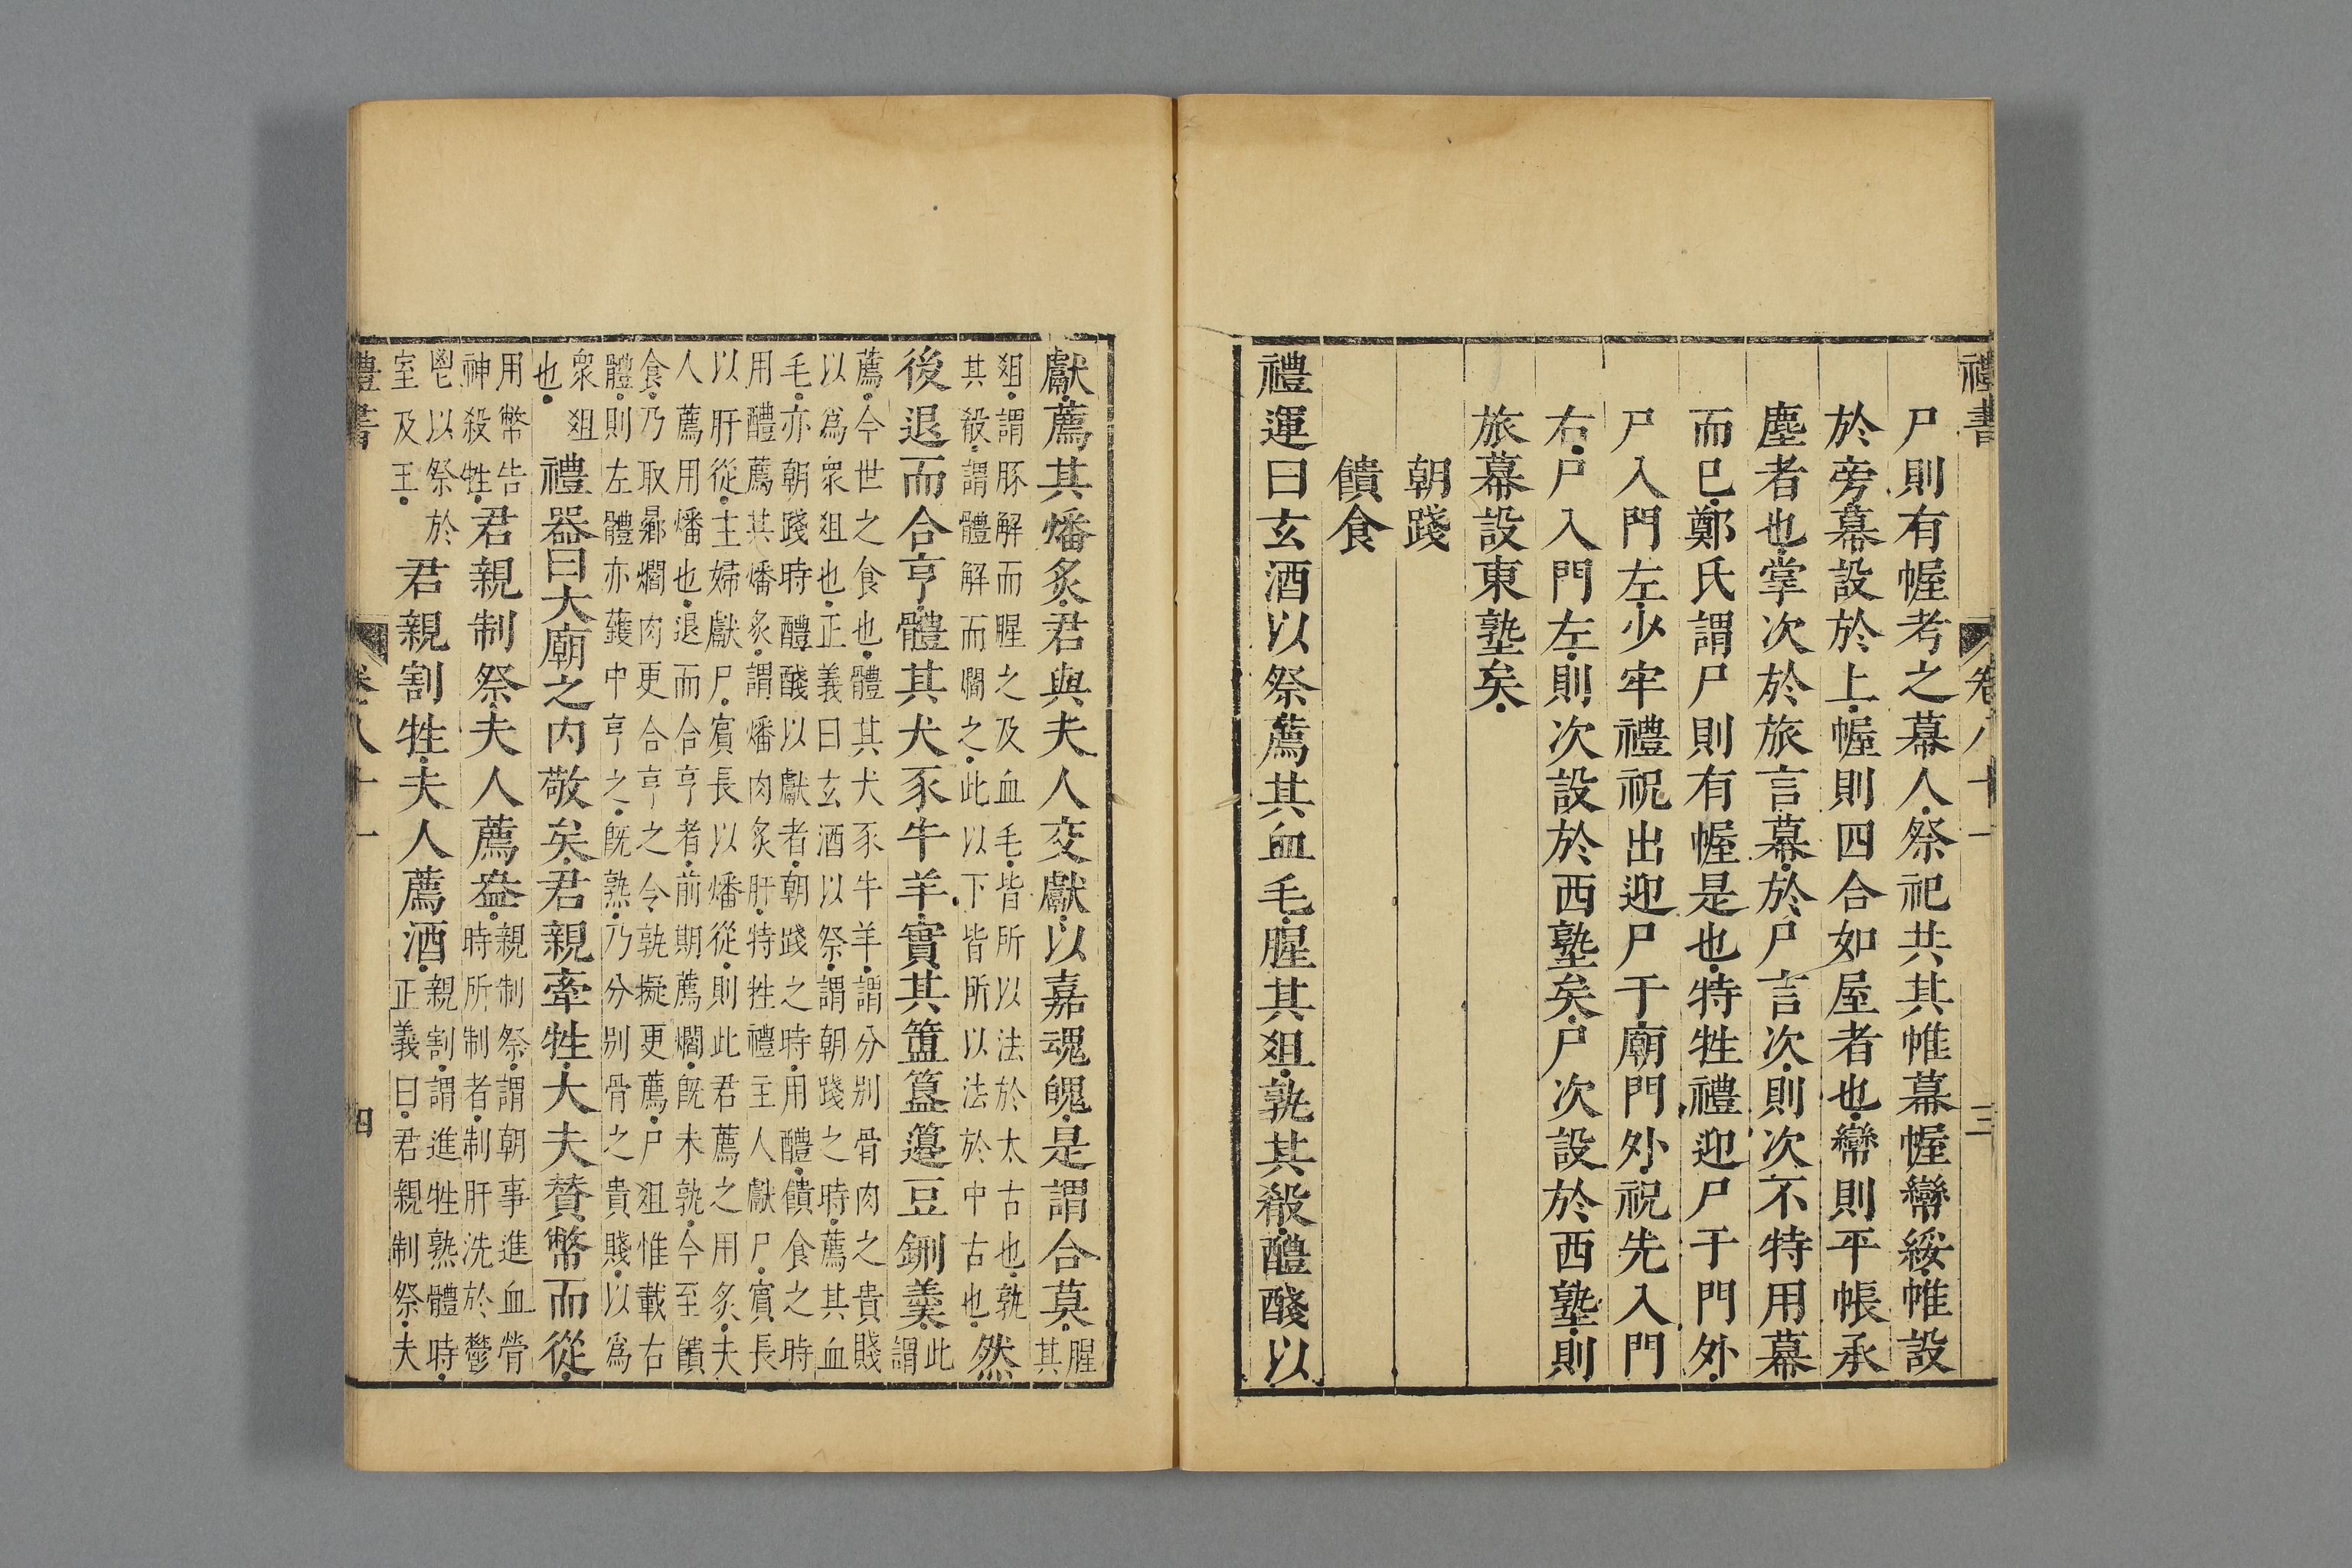 禮書 卷八十一 三
尸則有幄考之幕人祭祀共其帷幕幄帟綬帷設
於旁幕設於上幄則四合如屋者也帟則平帳承
塵者也掌次於旅言幕於尸言次則次不特用幕
而已鄭氏謂尸則有幄是也特牲禮迎尸于門外
尸入門左少牢禮祝出迎尸于廟門外祝先入門
右尸入門左則次設於西塾矣尸次設於西塾則
旅幕設東塾矣
朝踐
饋食
禮運曰玄酒以祭薦其血毛腥其俎孰其殽醴醆以
獻薦其燔炙君與夫人交獻以嘉魂魄是謂合莫腥其
俎謂豚解而腥之及血毛皆所以法於太古也孰
其殽謂體解而爓之此以下皆所以法於中古也然
後退而合亨體其犬豕牛羊實其簠簋籩豆鉶羹此謂
薦今世之食也體其犬豕牛羊謂分别骨肉之貴賤
以爲衆俎也正義曰玄酒以祭謂朝踐之時薦其血
毛亦朝踐時醴醆以獻者朝踐之時用醴饋食之時
用醴薦其燔炙謂燔肉炙肝特牲禮主人獻尸賓長
以肝從主婦獻尸賓長以燔從則此君薦之用炙夫
人薦用燔也退而合亨者前期薦爓旣未孰今至饋
食乃取曏爓肉更合亨之令孰擬更薦尸俎惟載右
體則左體亦鑊中亨之旣熟乃分别骨之貴賤以爲
衆俎
也禮器曰大廟之内敬矣君親牽牲大夫贊幣而從
用幣告
神殺牲君親制祭夫人薦盎親制祭謂朝事進血膋
時所制者制肝洗於鬱
鬯以祭於
室及王君親割牲夫人薦酒親割謂進牲熟體時
正義曰君親制祭夫
禮書 卷八十一 四